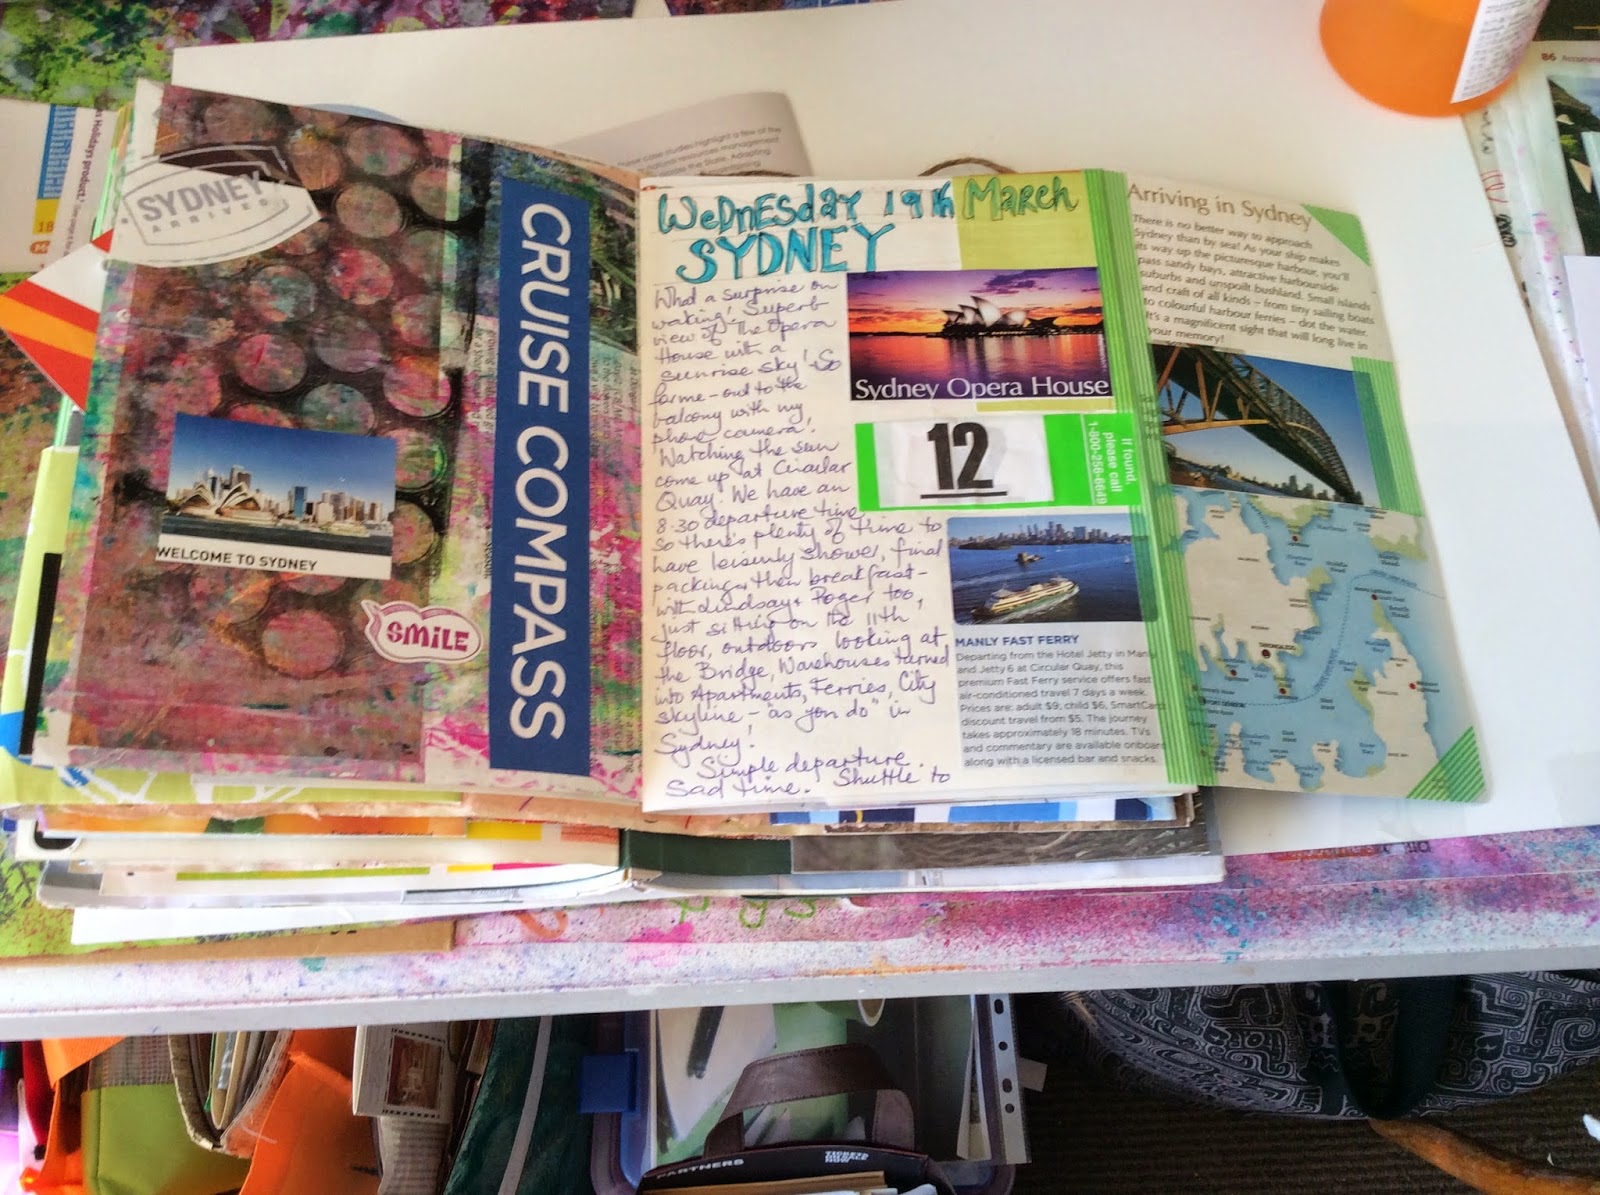 SYDNEY
ARRIVED
WELCOME TO SYDNEY
SMILE
CRUISE COMPASS
WeDnESday 19th March
SYDNEY
What a surprise on
waking! Superb
view of The Opera
House with a
sunrise sky! So
for me - out to the
balcony with my
phone camera!
Watching the sun
come up at Circular
Quay. We have an
8.30 departure time
so there's plenty of time to
have leisurely shower, final
packing & then breakfast -
with Lindsay & Roger too,
just sitting on the 11th
floor, outdoors looking at
the Bridge, Warehouses turned
into Apartments, Ferries, City
skyline - "as you do" in
Sydney!
Simple departure.
Sad time. Shuttle to
Sydney Opera House
12
If found,
please call
1-800-256-6649
MANLY FAST FERRY
Departing from the Hotel Jetty in Manly
and Jetty 6 at Circular Quay, this
premium Fast Ferry service offers fast
air-conditioned travel 7 days a week.
Prices are: adult $9, child $6, SmartCard
discount travel from $5. The journey
takes approximately 18 minutes. TVs
and commentary are available onboard
along with a licensed bar and snacks.
Arriving in Sydney
There is no better way to approach
Sydney than by sea! As your ship makes
its way up the picturesque harbour, you'll
pass sandy bays, attractive harbourside
suburbs and unspoilt bushland. Small islands
and craft of all kinds – from tiny sailing boats
to colourful harbour ferries – dot the water.
It's a magnificent sight that will long live in
your memory!
these case studies highlight a few of the
natural resources management
the State. Adopting
Holidays product.
18
86
PARTNERS